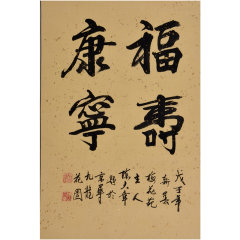 福壽
康寧
戊子年
新春
梅花苑
主人
陳大章
題於
京華
九龍
花園